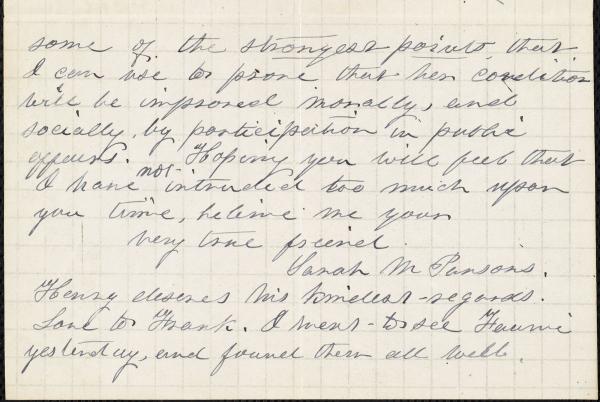 some of the strongest points, that
I can use to prove that her condition
will be improved morally, and
socially, by participation in public
affairs. Hoping you will feel that
I have not intruded too much upon
you time, believe me your
very true friend
Sarah M Parsons.
Henry desires his kindest regards.
Love to Frank. I went to see Fannie
yesterday, and found them all well.